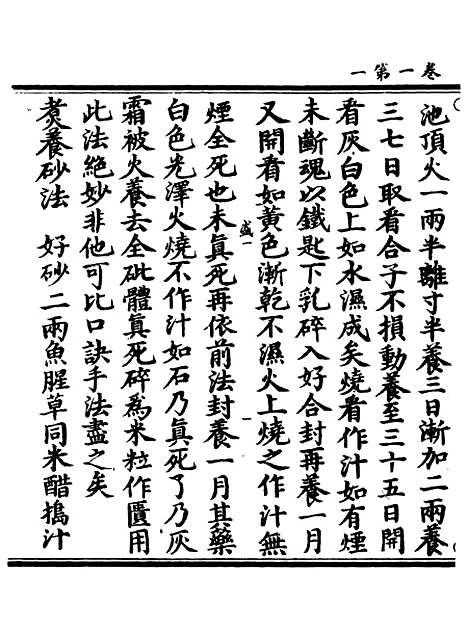 卷一第一
池頂火一兩半離寸半養三日漸加二兩養
三七日取看合子不損動養至三十五日開
看灰白色上如水濕成矣燒看作汁如有煙
未斷魂以鐵匙下乳碎入好合封再養一月
又開看如黃色漸乾不濕火上燒之作汁無
盛一
一
煙全死也未真死再依前法封養一月其藥
白色光澤火燒不作汁如石乃真死了乃灰
霜被火養去全砒體真死碎為米粒作匱用
此法絕妙非他可比口訣手法盡之矣
煑養砂法 好砂二兩魚腥草同米醋搗汁